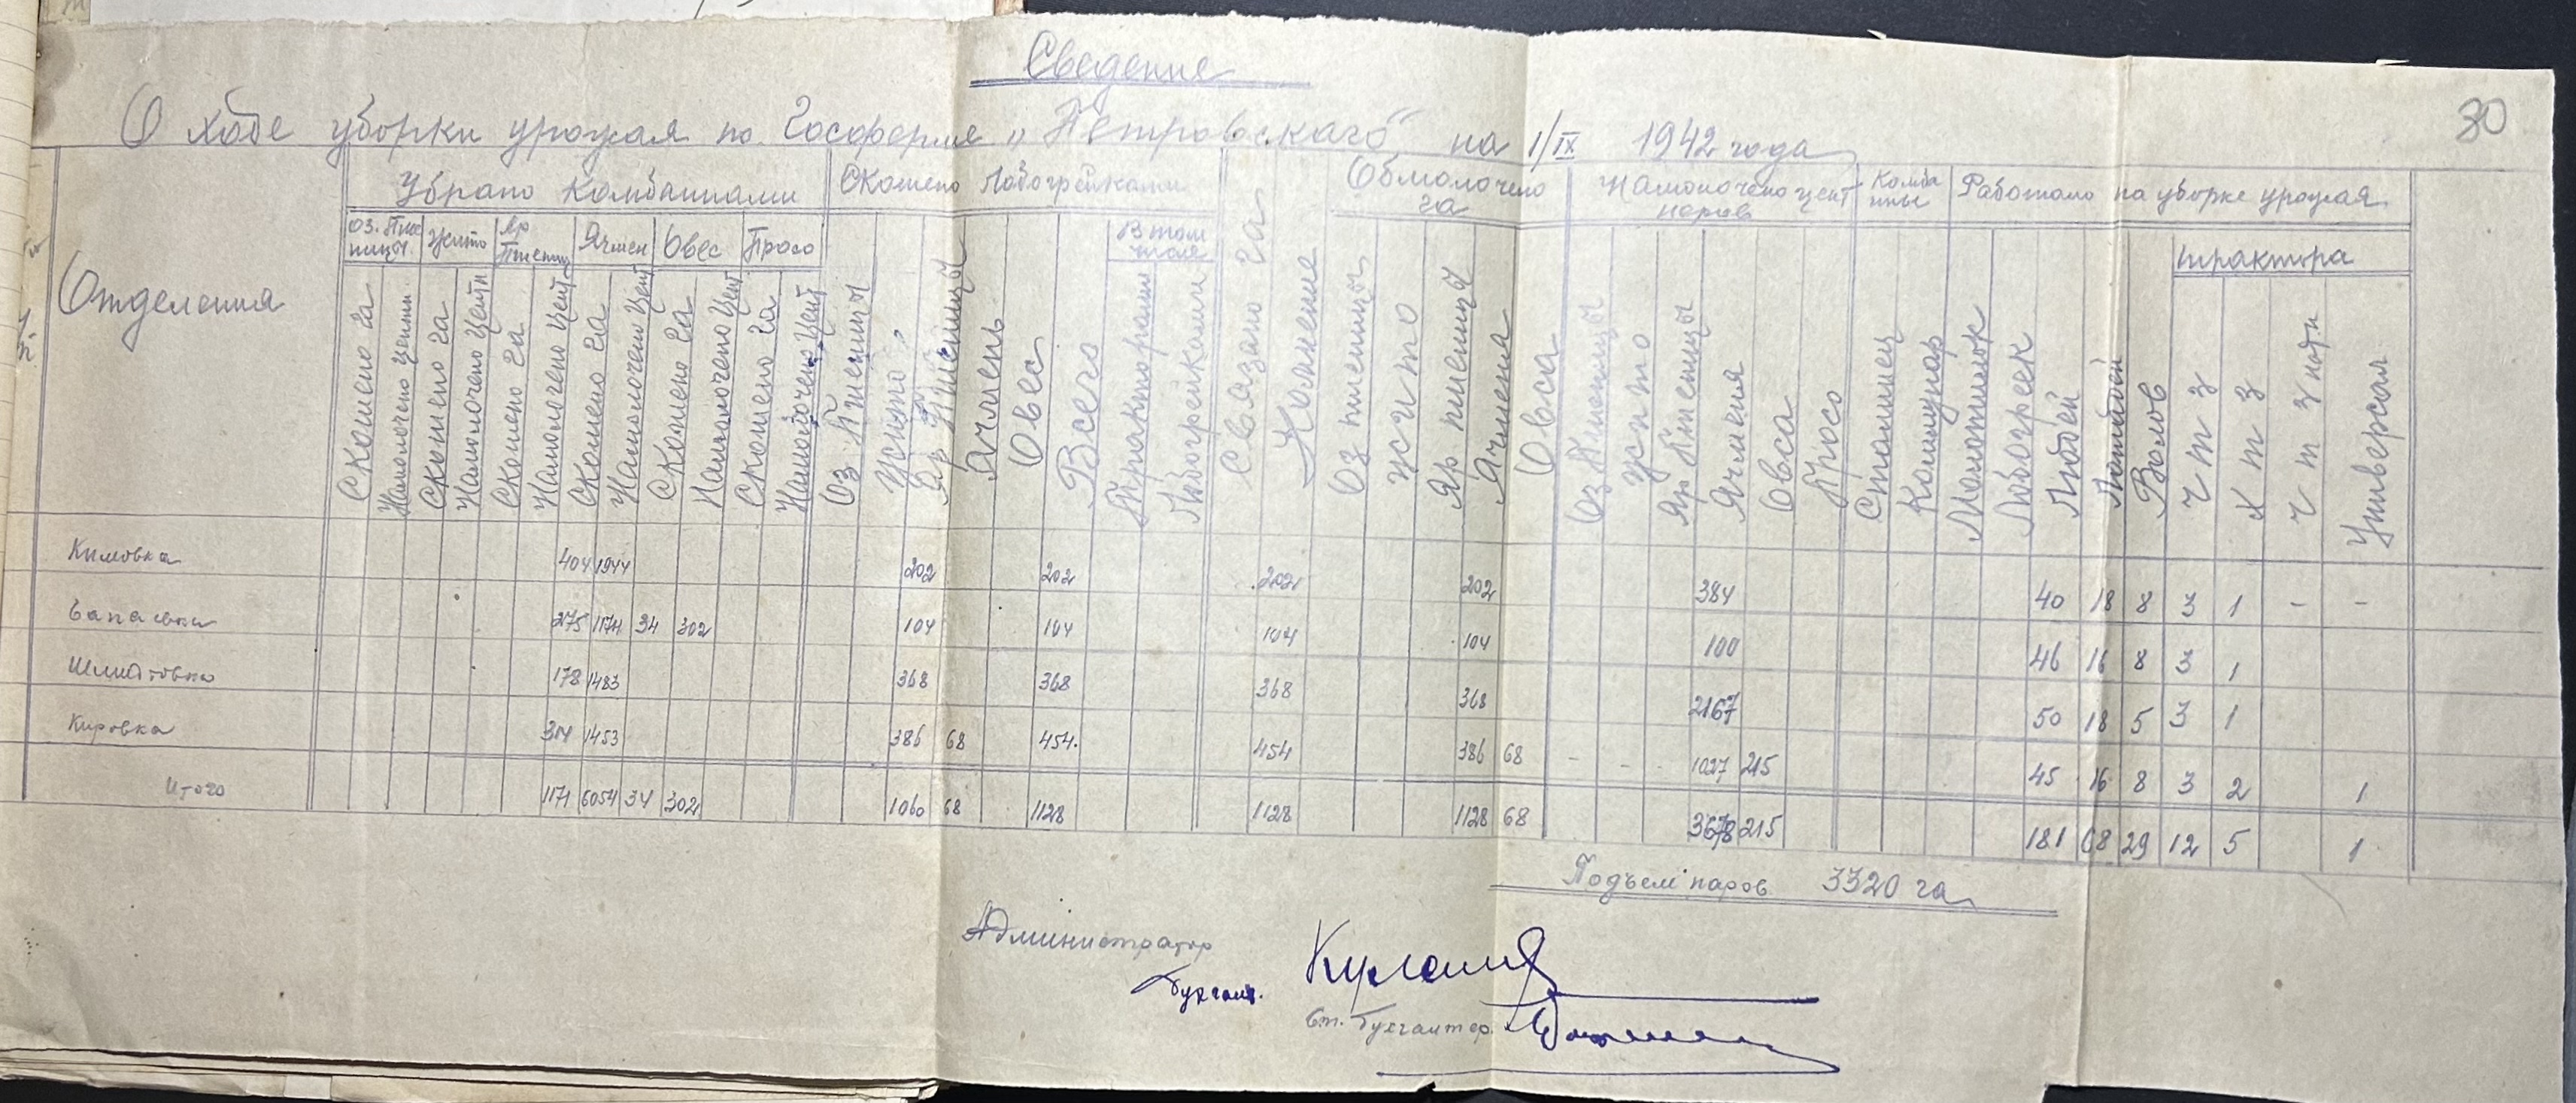 30
Сведение
О ходе уборки урожая по Госферме „Петровскаго" на 1/IX 1942 года
Отделения
Убрано Комбайнами
Скошено Лобогрейками
Связано га
Копнение
Обмолочено га
Намолочено центнеров
Комбайны
Работало на уборке урожая
Оз. Пшеницы
Жито
Яр Пшениц
Ячмен
Овес
Просо
В том числе
трактора
Скошено га
Намолочено центн.
Скошено га
Намолочено центн
Скошено га
Намолочено цент
Скошено га
Намолочено цент
Скошено га
Намолочено цент
Скошено га
Намолочено цент
Оз. Пшеницы
Жито
Яр Пшеницы
Ячмень
Овес
Всего
Тракторами
Лобогрейками
Оз пшеницы
жито
Яр пшеницы
Ячменя
Овса
Оз Пшеницы
жито
Яр Пшеницы
Ячменя
Овса
Просо
Сталинец
Комунар
Молотилок
Лобогреек
Людей
Лошадей
Волов
Ч т з
Х т з
Ч т з нати
Универсал
Климовка 404 1944 202 202 202 202 384 40 18 8 3 1 - -
Чапаевка 275 1174 34 302 104 104 104 104 100 46 16 8 3 1
Шмидтовка 178 1483 368 368 368 368 2167 50 18 5 3 1
Кировка 314 1453 386 68 454 454 386 68 - - 1027 215 45 16 8 3 2 1
Итого 1171 6054 34 302 1060 68 1128 1128 1128 68 3678 215 181 68 29 12 5 1
Подъем паров 3320 га
Администратор
Бухгалт.
Ст. Бухгалтер